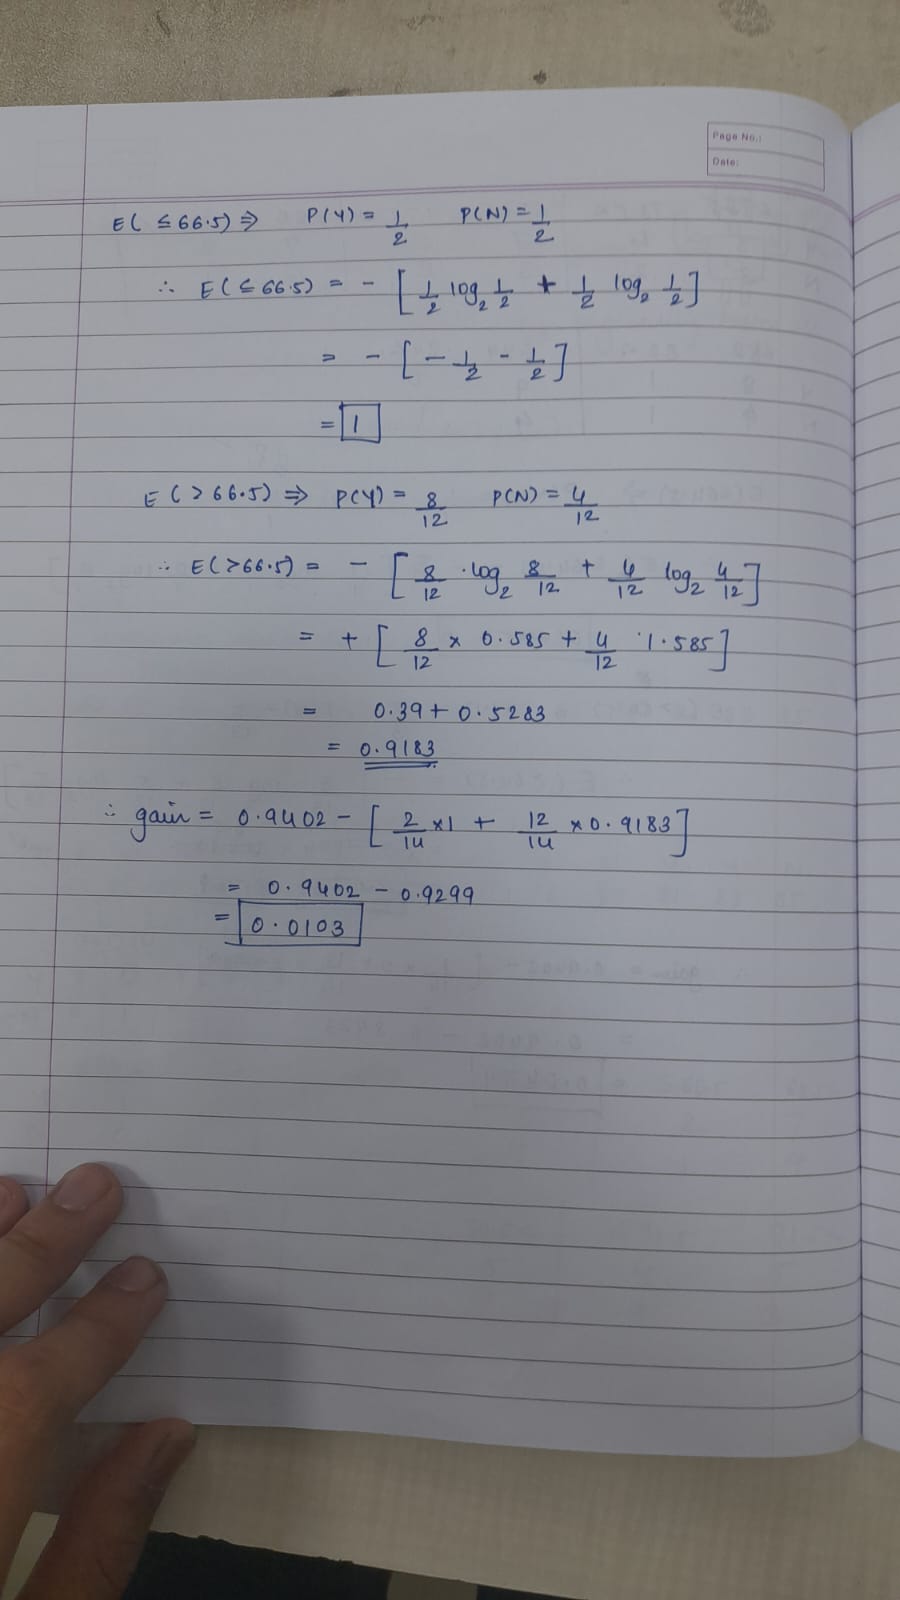 Page No.:
Date:
E( ≤ 66.5) ⇒ P(Y) = 1/2 P(N) = 1/2
∴ E(≤ 66.5) = - [ 1/2 log₂ 1/2 + 1/2 log₂ 1/2 ]
= - [ - 1/2 - 1/2 ]
= 1
E ( > 66.5) ⇒ P(Y) = 8/12 P(N) = 4/12
∴ E(>66.5) = - [ 8/12 · log₂ 8/12 + 4/12 log₂ 4/12 ]
= + [ 8/12 × 0.585 + 4/12 · 1.585 ]
= 0.39 + 0.5283
= 0.9183
∴ gain = 0.9402 - [ 2/14 × 1 + 12/14 × 0.9183 ]
= 0.9402 - 0.9299
= 0.0103